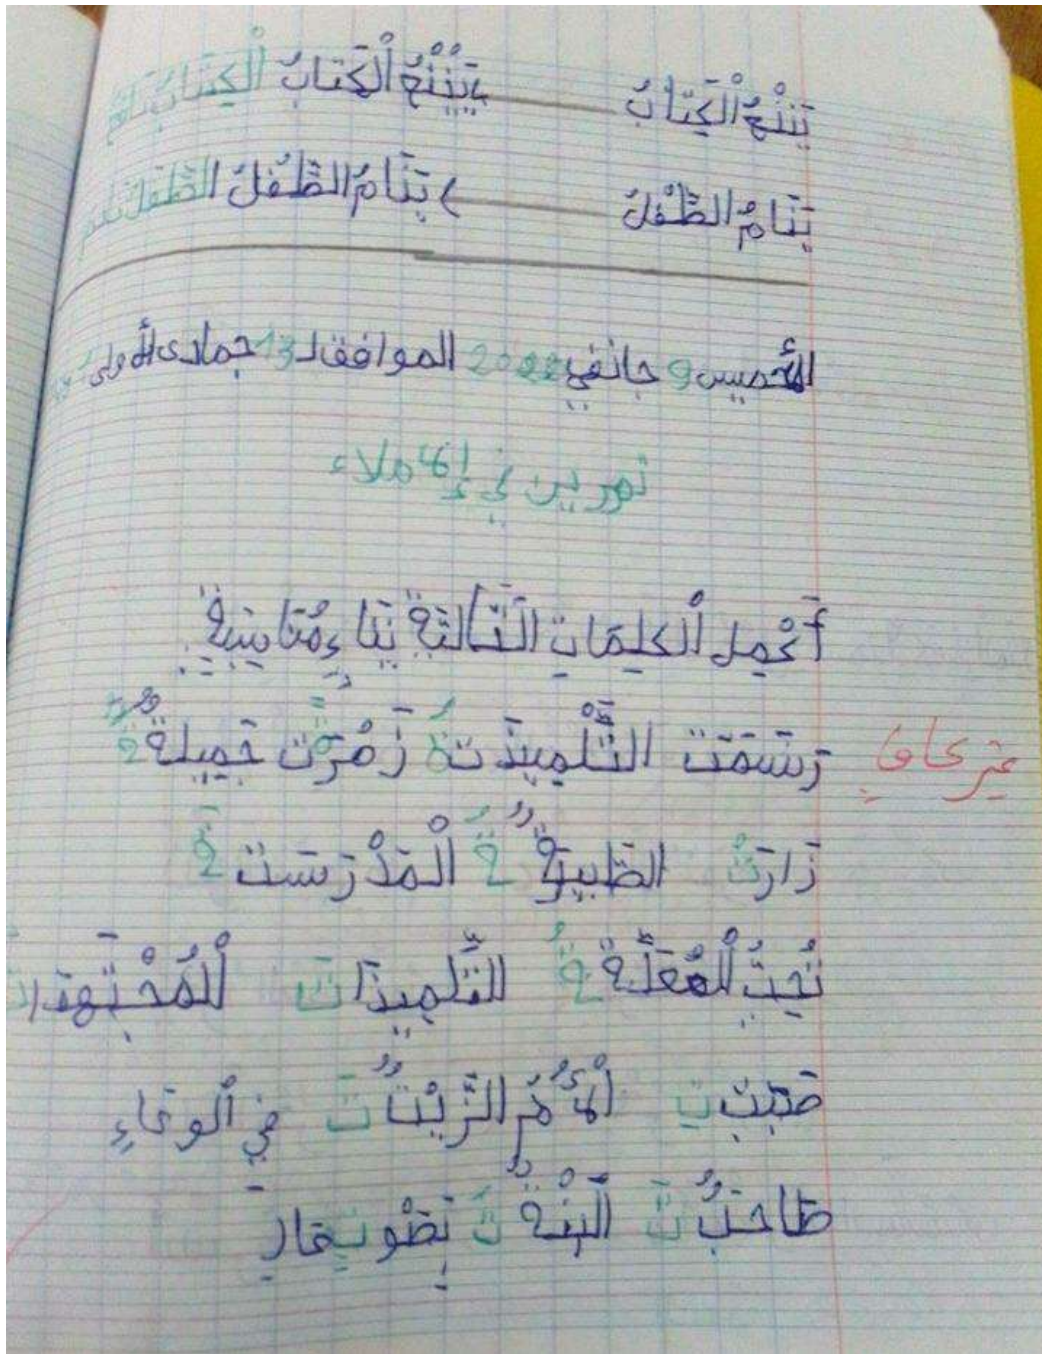 يَنْفَعُ الْكِتَابُ يَنْفَعُ الْكِتَابُ الْكِتَابُ نَافِعٌ
يَنَامُ الطِّفْلُ يَنَامُ الطِّفْلُ الطِّفْلُ نَائِم
الخميس 9 جانفي 2022 الموافق لـ 13 جمادى الأولى
تمرين في إملاء
أَكْمِلِ الْكَلِمَاتِ التَّالِيَةِ بِتَاءٍ مُنَاسِبَةٍ.
رَسَمَت التِّلْمِيذَتةُ زَهْرَت جَمِيلةً غير كاف
زَارَتْ الطَّبِيبَةُ الْمَدْرَسَت ة
تُحِبُّ الْمُعَلِّمَةُ التِّلْمِيذَاتِ الْمُجْتَهِدَات
صَبَّت الْأُمُّ الزَّيْتَ فِي الْوِعَاءِ